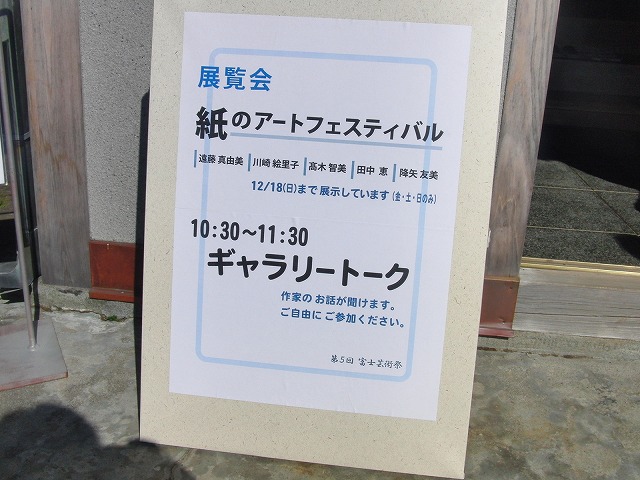 展覧会
紙のアートフェスティバル
遠藤 真由美 | 川崎 絵里子 | 髙木 智美 | 田中 恵 | 降矢 友美
12/18(日)まで 展示しています (金・土・日のみ)
10:30～11:30
ギャラリートーク
作家の お話が聞けます。
ご自由に ご参加ください。
第5回 富士芸術祭